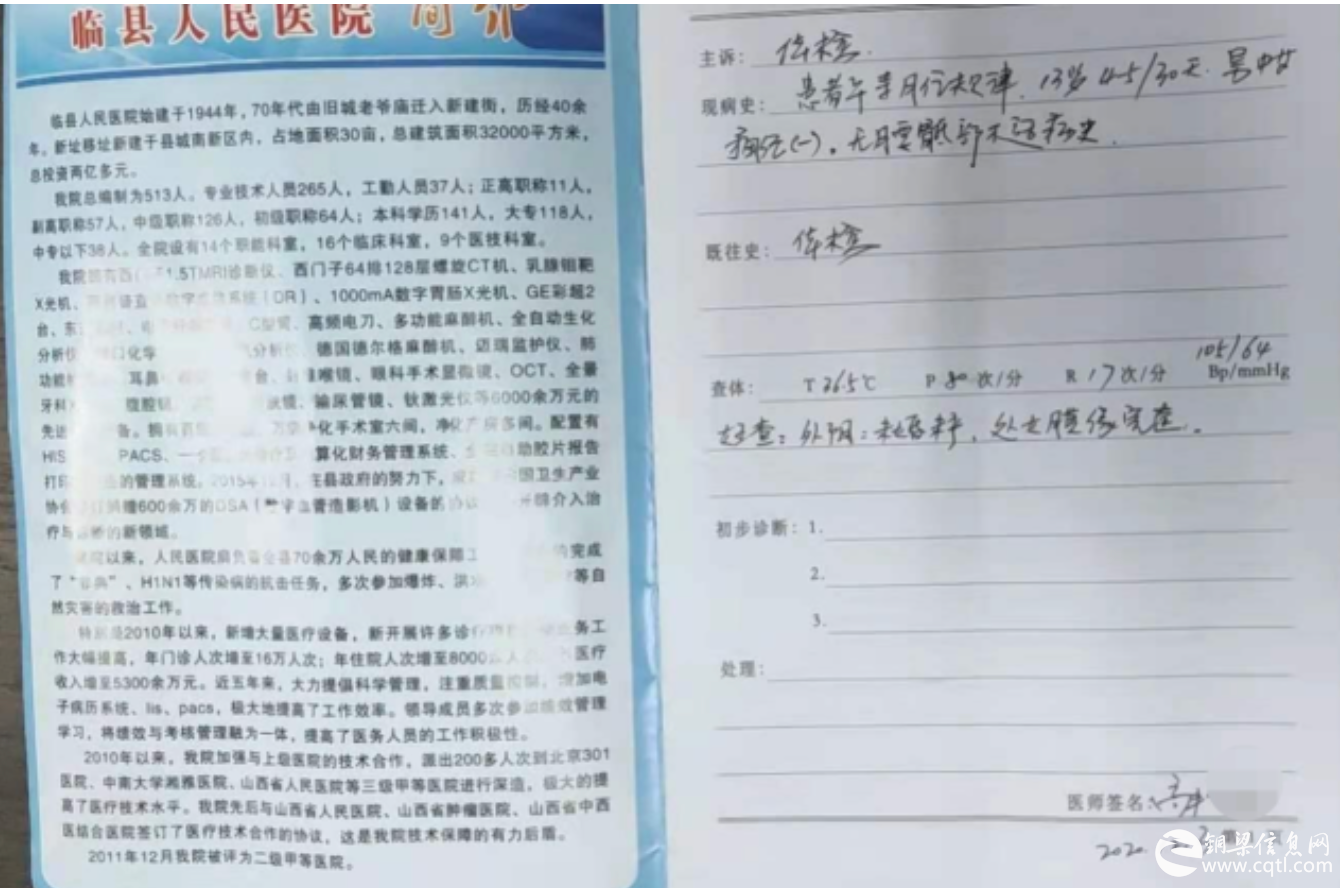 临县人民医院 简介
临县人民医院始建于1944年，70年代由旧城老爷庙迁入新建街，历经40余
年。新址移址新建于县城南新区内，占地面积30亩，总建筑面积32000平方米，
总投资两亿多元。
我院总编制为513人。专业技术人员265人，工勤人员37人；正高职称11人，
副高职称57人，中级职称126人，初级职称64人；本科学历141人，大专118人，
中专以下38人。全院设有14个职能科室，16个临床科室，9个医技科室。
我院拥有西 1.5TMRI诊断仪、西门子64排128层螺旋CT机、乳腺钼靶
X光机、 数字 系统（DR）、1000mA数字胃肠X光机、GE彩超2
台、东 C型臂、高频电刀、多功能麻醉机、全自动生化
分析仪 口化学 分析仪 德国德尔格麻醉机、迈瑞监护仪、肺
功能 耳鼻 台、 喉镜、眼科手术显微镜、OCT、全景
牙科X 腹腔镜 镜、输尿管镜、钬激光仪等6000余万元的
先进 备。拥有 万 净化手术室六间，净化产房多间。配置有
HIS PACS、一 算化财务管理系统、 自动胶片报告
打印 的管理系统。2015年 月，在县政府的努力下， 国卫生产业
协会 捐赠600余万的DSA（数字血管造影机）设备的协议 介入治
疗与诊断的新领域。
建院以来，人民医院肩负着全县70余万人民的健康保障工 完成
了“非典”、H1N1等传染病的抗击任务，多次参加爆炸、洪 等自
然灾害的救治工作。
特别是2010年以来，新增大量医疗设备，新开展许多诊疗 务工
作大幅提高，年门诊人次增至16万人次；年住院人次增至8000 人 医疗
收入增至5300余万元。近五年来，大力提倡科学管理，注重质量控制，增加电
子病历系统、lis、pacs，极大地提高了工作效率。领导成员多次参加绩效管理
学习，将绩效与考核管理融为一体，提高了医务人员的工作积极性。
2010年以来，我院加强与上级医院的技术合作，派出200多人次到北京301
医院、中南大学湘雅医院、山西省人民医院等三级甲等医院进行深造，极大的提
高了医疗技术水平。我院先后与山西省人民医院、山西省肿瘤医院、山西省中西
医结合医院签订了医疗技术合作的协议，这是我院技术保障的有力后盾。
2011年12月我院被评为二级甲等医院。
主诉：体检.
现病史：患者平素月经规律，13岁 4-5/30天.
痛经(一)，无 病史.
既往史：体检
查体： T 36.5℃ P 80次/分 R 17次/分 105/64 Bp/mmHg
妇查：外阴：未婚未产，处女膜缘完整.
初步诊断：1.
2.
3.
处理：
医师签名：
2020.
铜梁信息网
www.cqtl.com